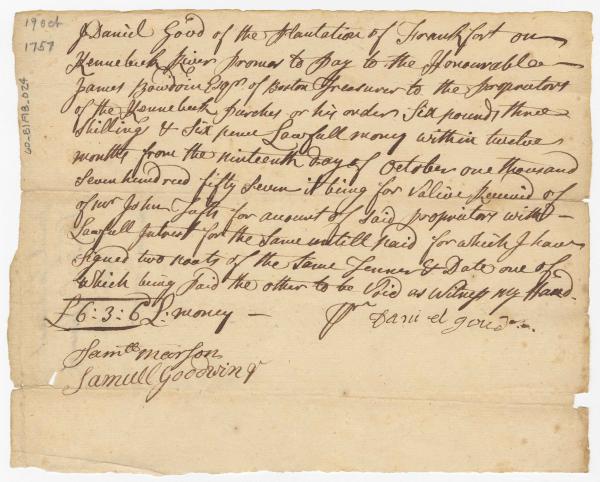 19 Oct
1757
60-6191B-024
I Daniel Good of the Plantation of Frankfort on
Kennebeck River promes to Pay to the Honourable
James Bowdoin Esqr. of Boston Treasurer to the propriators
of the Kennebeck purches or his order Six pounds three
Shillings & Six pence Lawfull money within twelve
months from the nineteenth day of October one thousand
Seven hundred fifty Seven it being for Value Received of
of mr John for account of Said propriators with
Lawfull Intrest for the Same untill paid for which I have
Signed two noats of the Same Tenner & Date one of
Which being paid the other to be Void as Witness my Hand
£6:3:6 L: money Daniel goud
Samll marson
Samuell Goodwin